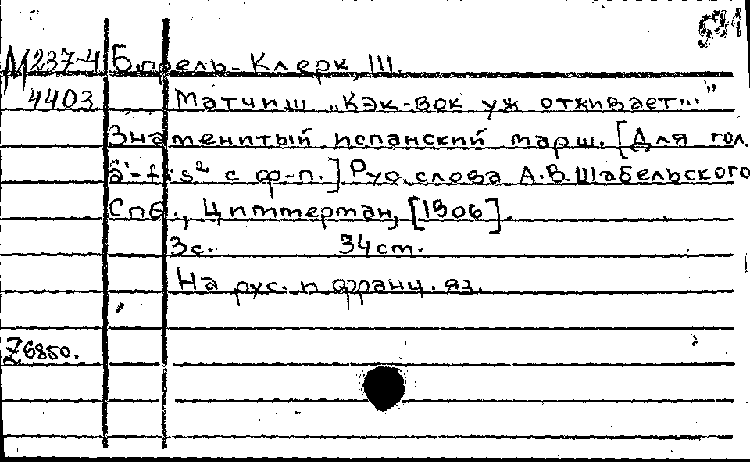 591
М237-4 Борель-Клерк, Ш.
4403 Матчиш „Кэк-вок уж отживает..."
Знаменитый испанский марш. [Для гол.
с ф-п.] Рус. слова А.В. Шабельского
Спб., Циммерман, [1906].
3с. 34 ст.
На рус. и франц. яз.
Z6850.